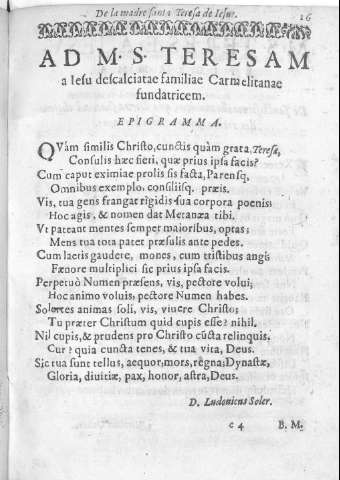 De la madre santa Teresa de Iesus. 16
AD M. S. TERESAM
a Iesu descalciatae familiae Carmelitanae
fundatricem.
EPIGRAMMA.
QVàm similis Christo, cunctis quàm grata, Teresa,
Consulis hæc fieri, quæ prius ipsa facis?
Cum caput eximiae prolis sis facta, Parensq,
Omnibus exemplo, consiliisq, præis.
Vis, tua gens frangat rigidis sua corpora poenis:
Hoc agis, & nomen dat Metanæa tibi.
Vt pareant mentes semper maioribus, optas;
Mens tua tota patet præsulis ante pedes.
Cum laetis gaudere, mones, cum tristibus angi
Fœnore multiplici sic prius ipsa facis.
Perpetuò Numen præsens, vis, pectore volui;
Hoc animo voluis, pectore Numen habes.
animas soli, vis, viuere Christo;
Tu præter Christum quid cupis esse? nihil.
Nil cupis, & prudens pro Christo cūcta relinquis.
Cur? quia cuncta tenes, & tua vita, Deus.
Sic tua sunt tellus, aequor, mors, regna, Dynastæ,
Gloria, diuitiæ, pax, honor, astra, Deus.
D. Ludouicus Soler.
c 4 B. M.